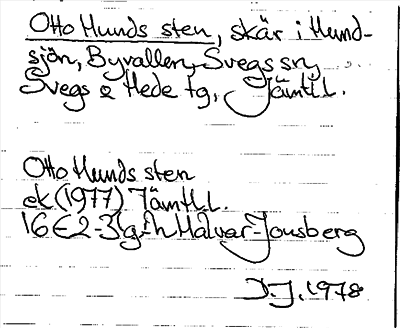 Otto Hunds sten, skär i Hund-
sjön, Byvallen, Svegs sn,
Svegs o Hede tg, Jämtl.l.
Otto Hunds sten
ek (1977) Jämtl.l.
16E2-3g-h Halvar-Jonsberg
D.J. 1978